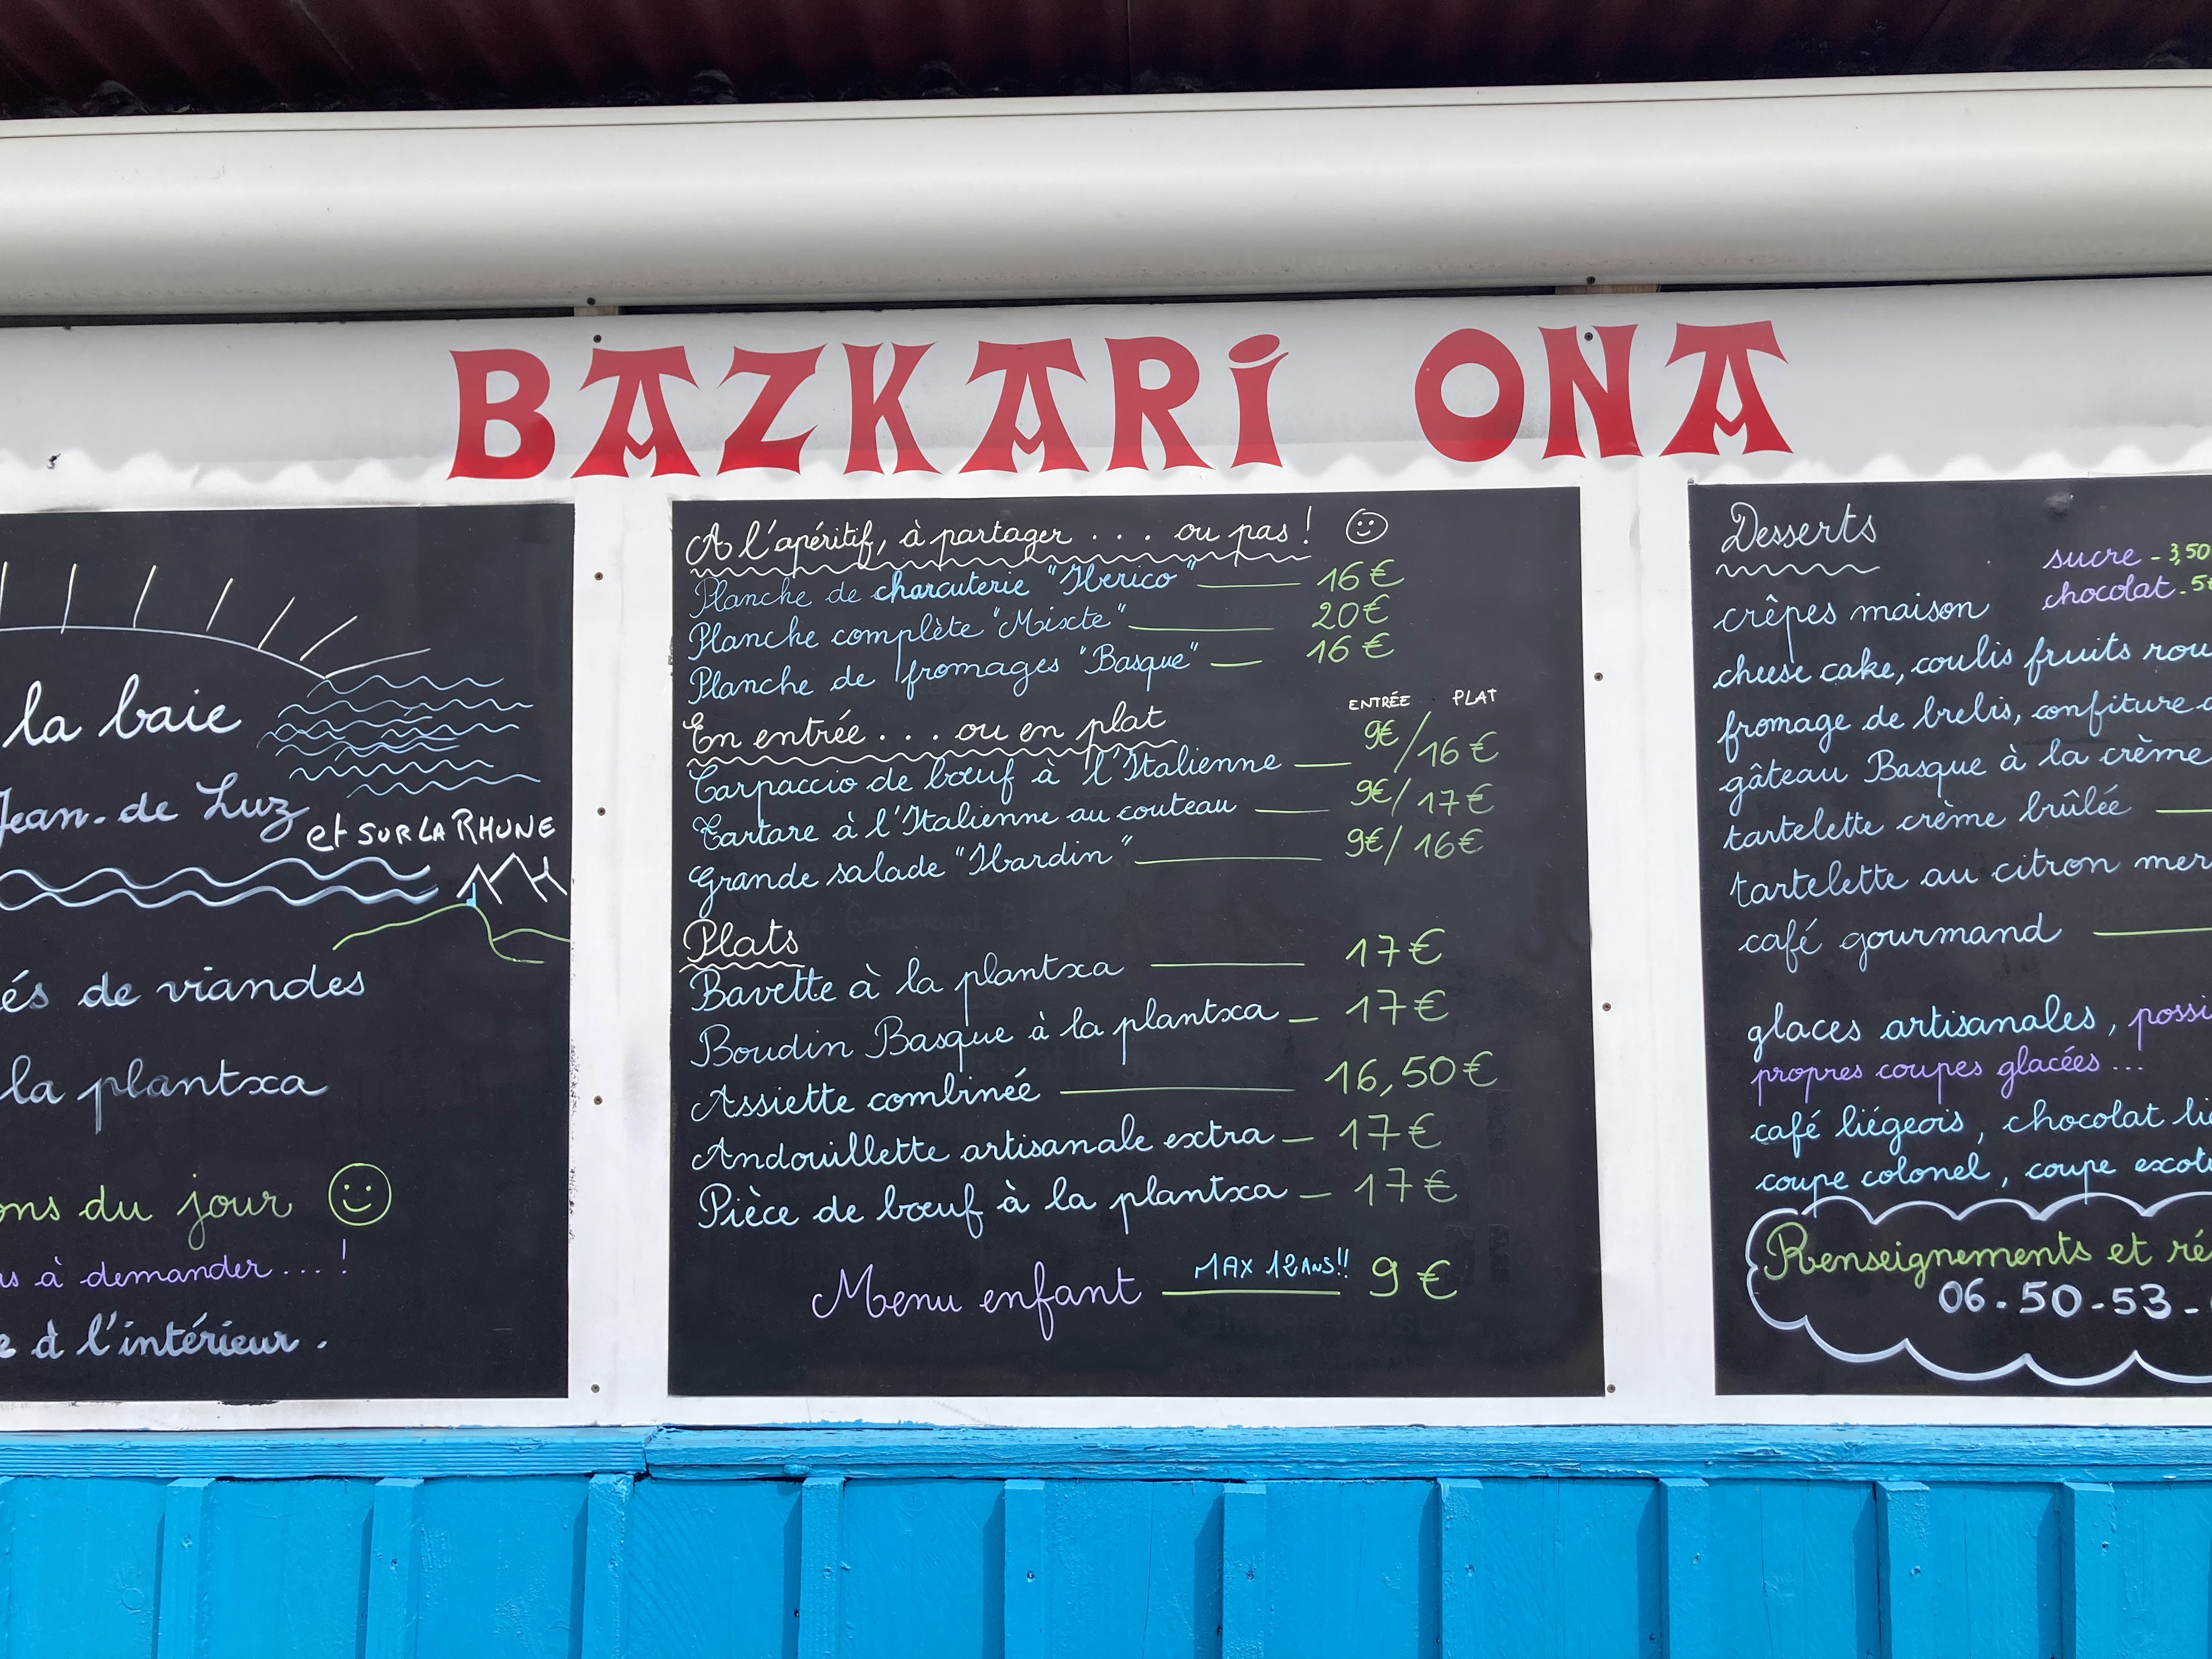 BAZKARI ONA
la baie
Jean-de Luz
et SUR LA RHUNE
és de viandes
la plantxa
ons du jour
à demander...!
à l'intérieur.
A l'apéritif, à partager . . . ou pas !
Planche de charcuterie "Iberico" 16€
Planche complète "Mixte" 20€
Planche de fromages "Basque" 16€
ENTRÉE PLAT
En entrée . . . ou en plat
Carpaccio de bœuf à l'Italienne 9€/16€
Tartare à l'Italienne au couteau 9€/17€
Grande salade "Ibardin" 9€/16€
Plats
Bavette à la plantxa 17€
Boudin Basque à la plantxa 17€
Assiette combinée 16,50€
Andouillette artisanale extra 17€
Pièce de bœuf à la plantxa 17€
Menu enfant MAX 12 ANS!! 9€
Desserts
sucre - 3,50
crêpes maison chocolat - 5€
cheese cake, coulis fruits rou
fromage de brebis, confiture
gâteau Basque à la crème
tartelette crème brûlée
tartelette au citron mer
café gourmand
glaces artisanales, possi
propres coupes glacées...
café liégeois, chocolat li
coupe colonel, coupe exoti
Renseignements et ré
06-50-53-